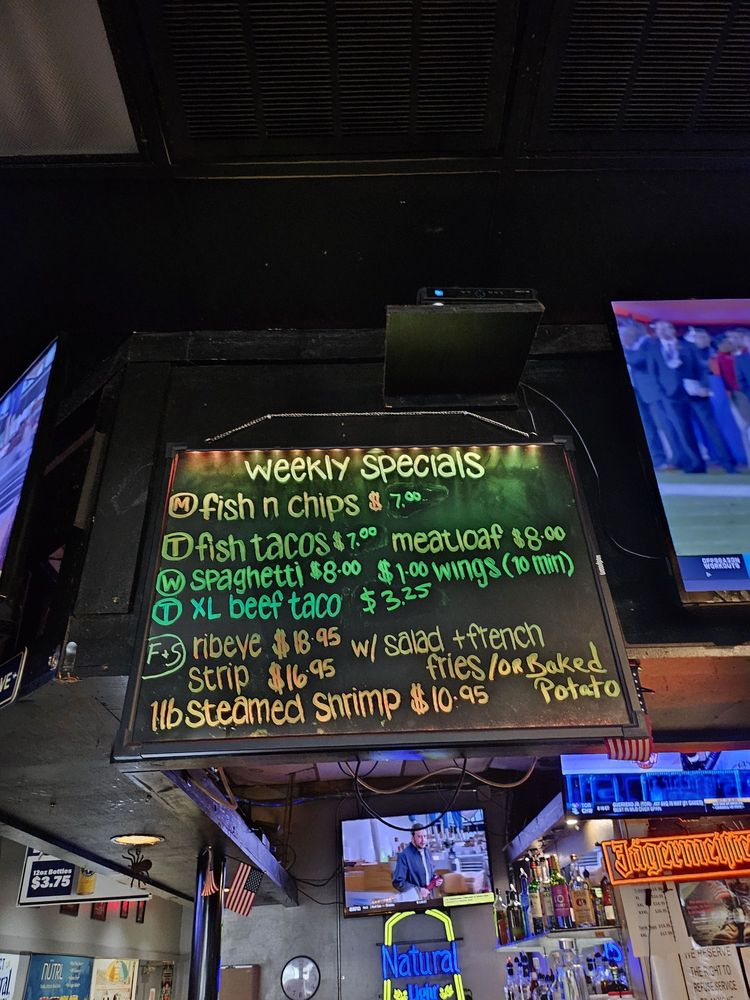 weekly specials
M fish n chips $ 7.00
T fish tacos $7.00 meatloaf $8.00
W spaghetti $8.00 $1.00 wings (10 min)
T XL beef taco $3.25
F+S ribeye $18.95 w/ salad + french
strip $16.95 fries/or Baked
Potato
1lb steamed shrimp $10.95
OFFSEASON
WORKOUTS
Jägermeister
12oz Bottles
$3.75
NUTRL
Natural
Light
WE RESERVE
THE RIGHT TO
REFUSE SERVICE